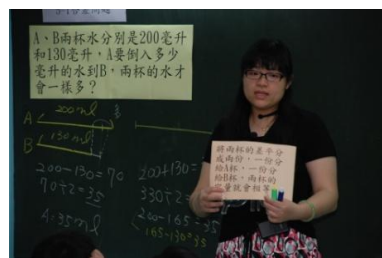 A、B兩杯水分別是200毫升
和130毫升,A要倒入多少
毫升的水到B,兩杯的水才
會一樣多?
A 200ml
B 130ml
200-130=70
70÷2=35
A:35ml
200+130=
330÷2=
200-165=35
165-130=35
將兩杯的差平分
成兩份,一份分
給A杯,一份分
給B杯,兩杯的
量就會相等